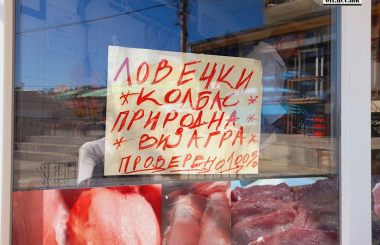 off.net.mk
ЛОВЕЧКИ
*КОЛБАС*
ПРИРОДНА
*ВИЈАГРА*
ПРОВЕРЕНО 100%